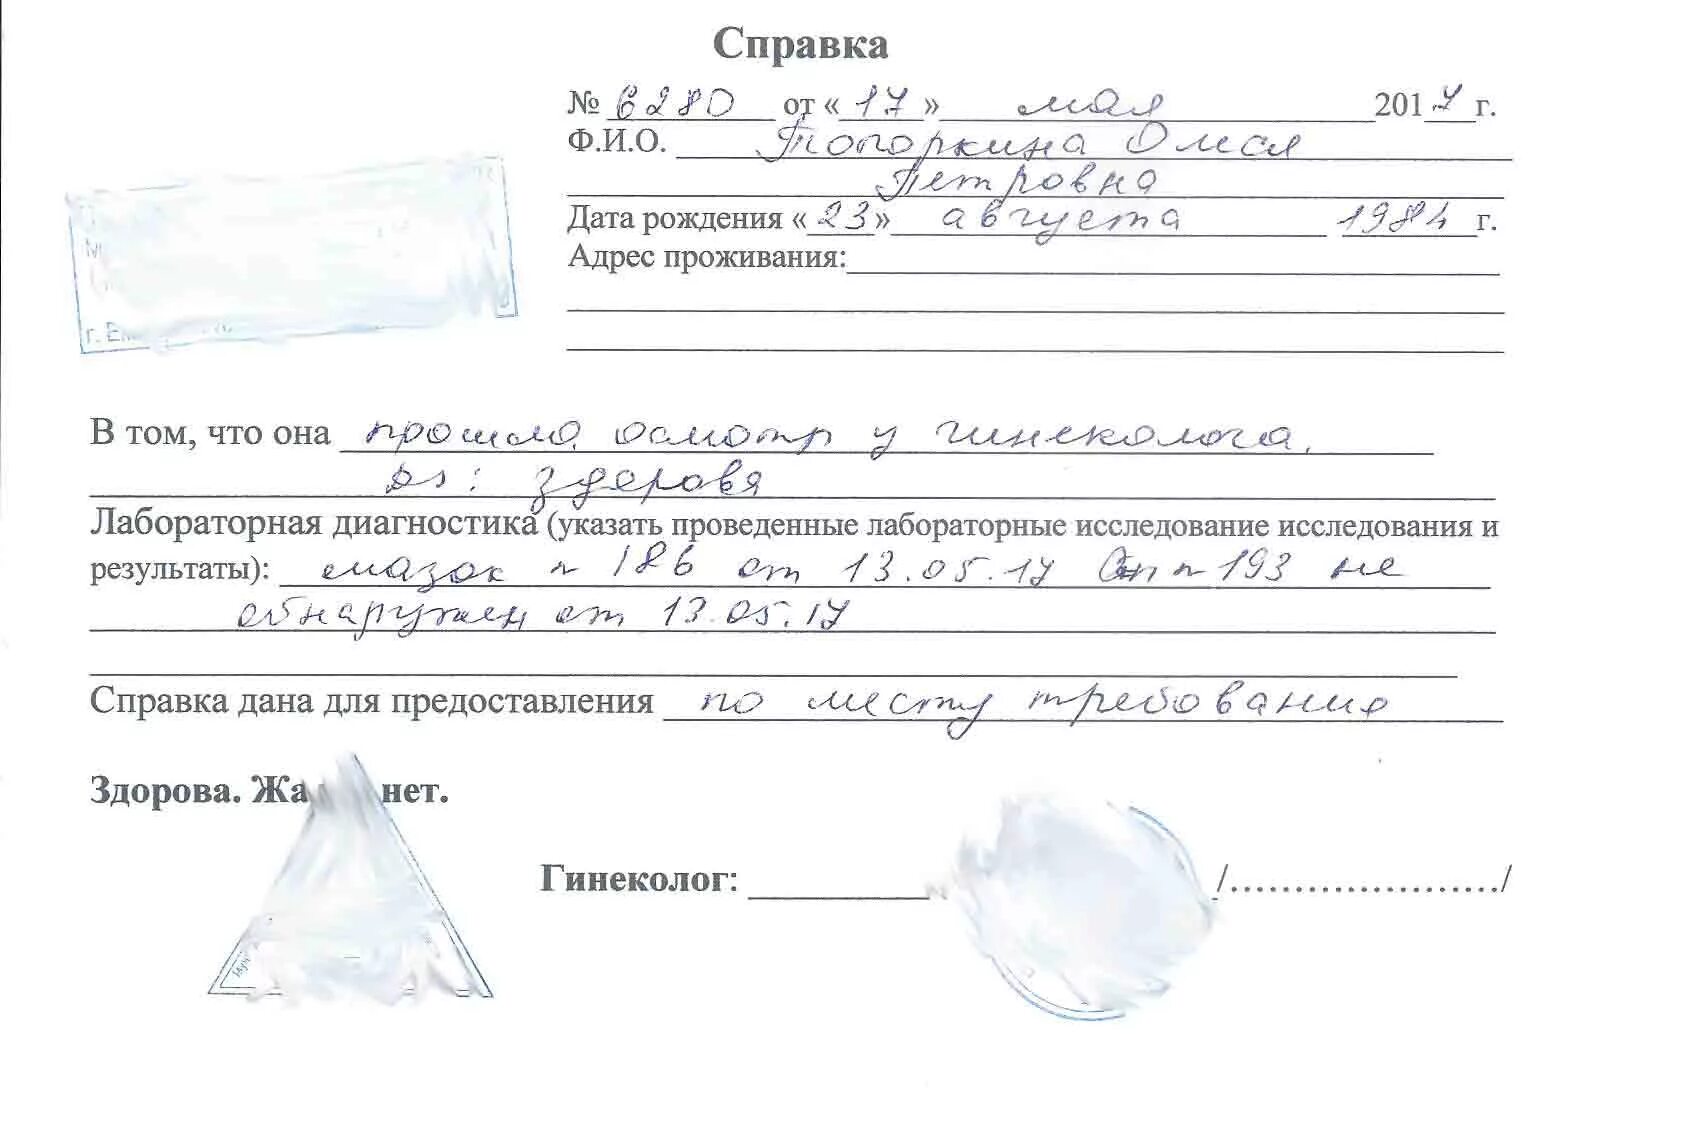 Справка
№ 6280 от «17» мая 2017 г.
Ф.И.О. Топоркина Олеся
Петровна
Дата рождения «23» августа 1984 г.
Адрес проживания:
г. Е
В том, что она прошла осмотр у гинеколога.
Ds: здорова
Лабораторная диагностика (указать проведенные лабораторные исследование исследования и
результаты): мазок № 186 от 13.05.17 № 193 не
обнаружен от 13.05.17
Справка дана для предоставления по месту требования
Здорова. Жа нет.
Гинеколог: /...................../